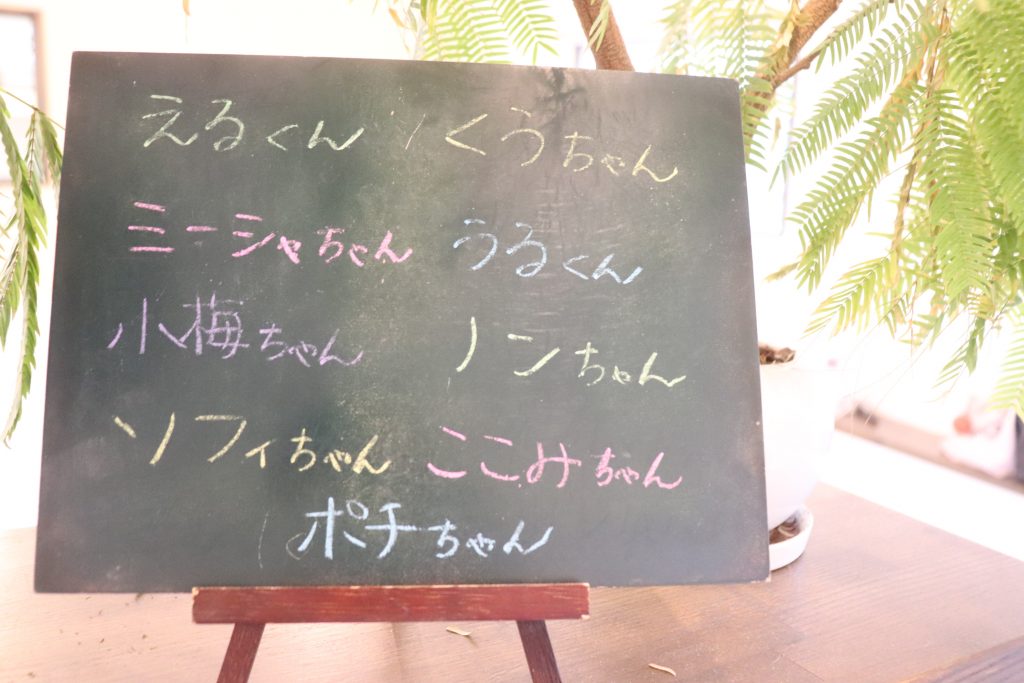 えるくん くうちゃん
ミーシャちゃん うるくん
小梅ちゃん ノンちゃん
ソフィちゃん ここみちゃん
ポチちゃん